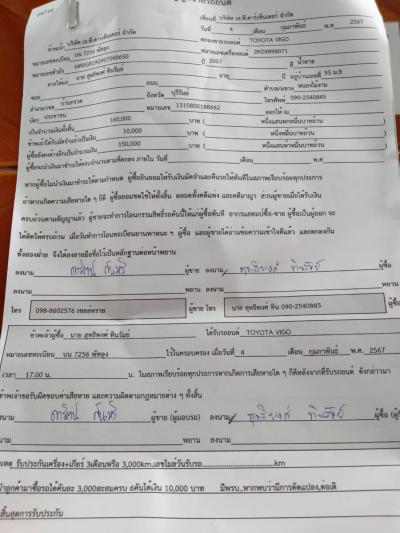 เขียนที่ บริษัท เจ.ดี.คาร์เซ็นเตอร์ จำกัด
วันที่ 4 เดือน กุมภาพันธ์ พ.ศ. 2567
ข้าพเจ้า บริษัท เจ.ดี.คาร์เซ็นเตอร์ จำกัด
ตกลงขายรถยนต์ TOYOTA VIGO
หมายเลขทะเบียน บน 7256 พัทลุง หมายเลขเครื่องยนต์ 2KD9898071
หมายเลขตัวถัง ปี 2007 สี น้ำตาล
ขายให้แก่ นาย สุทธิพงศ์ หินรัมย์ อายุ ปี อยู่บ้านเลขที่ 95 ม.8
ซอย ถนน ตำบล/แขวง หนองไม้งาม
อำเภอ/เขต บ้านกรวด จังหวัด บุรีรัมย์ โทรศัพท์ 090-2540845
บัตร ประชาชน หมายเลข 1310800188662 ออกให้ ณ
เป็นจำนวนเงินทั้งสิ้น 160,000 บาท ( หนึ่งแสนหกหมื่นบาทถ้วน )
ข้าพเจ้าได้รับมัดจำแล้วเป็นเงิน 10,000 บาท ( หนึ่งหมื่นบาทถ้วน )
ผู้ซื้อยังคงค้างอีกเป็นจำนวนเงิน 150,000 บาท ( หนึ่งแสนห้าหมื่นบาทถ้วน )
ผู้ซื้อจะนำเงินมาชำระให้ครบจำนวนตามที่ตกลง ภายใน วันที่ เดือน พ.ศ.
หากผู้ซื้อไม่นำเงินมาชำระให้ตามกำหนด ผู้ซื้อยินยอมให้ริบเงินมัดจำและคืนรถให้ทันทีในสภาพเรียบร้อยทุกประการ
ถ้าหากเกิดความเสียหายใด ๆ ก็ดี ผู้ซื้อยอมชดใช้ให้ทั้งสิ้น ตลอดทั้งคดีแพ่ง และคดีอาญา ส่วนผู้ขายเมื่อได้รับเงิน
ครบถ้วนตามสัญญาแล้ว ผู้ขายจะทำการโอนกรรมสิทธิ์รถคันนี้ให้แก่ผู้ซื้อทันที
ได้คิดให้ครบถ้วน เมื่อวันทำการโอนทะเบียนยานพาหนะ ฯ ผู้ซื้อ และผู้ขายได้อ่านข้อความเข้าใจดีแล้ว และตกลงกัน
ทั้งสองฝ่าย จึงได้ลงลายมือชื่อไว้เป็นหลักฐานต่อหน้าพยาน
ลงนาม ผู้ขาย ลงนาม ผู้ซื้อ
ลงนาม พยาน ลงนาม พยาน
โทร 098-8602576 เซลล์ทราย ผู้ขาย โทร นาย สุทธิพงศ์ หิน 090-2540845
ข้าพเจ้าผู้ซื้อ นาย สุทธิพงศ์ หินรัมย์ ได้รับรถยนต์ TOYOTA VIGO
หมายเลขทะเบียน บน 7256 พัทลุง ไว้ในครอบครอง เมื่อวันที่ 4 เดือน กุมภาพันธ์ พ.ศ. 2567
เวลา 17.00 น. น. ในสภาพเรียบร้อยทุกประการหากเกิดการเสียหายใด ๆ ก็ดีหลังจากที่รับรถยนต์ ดังกล่าวมา
ข้าพเจ้าขอรับผิดชอบค่าเสียหาย และความผิดตามกฎหมายต่าง ๆ ทั้งสิ้น
ลงนาม ผู้ขาย (ผู้มอบรถ) ลงนาม ผู้ซื้อ
ลงนาม พยาน ลงนาม พยาน
เหตุ รับประกันเครื่อง+เกียร์ 3เดือนหรือ 3,000km.เลขไมล์วันรับรถ km
นำลูกค้ามาซื้อรถได้คันละ 3,000สะสมครบ 6คันได้เงิน 10,000 บาท มีพรบ. หากพบว่ามีการดัดแปลง,ต่อเติ
สิ้นสุดการรับประกัน